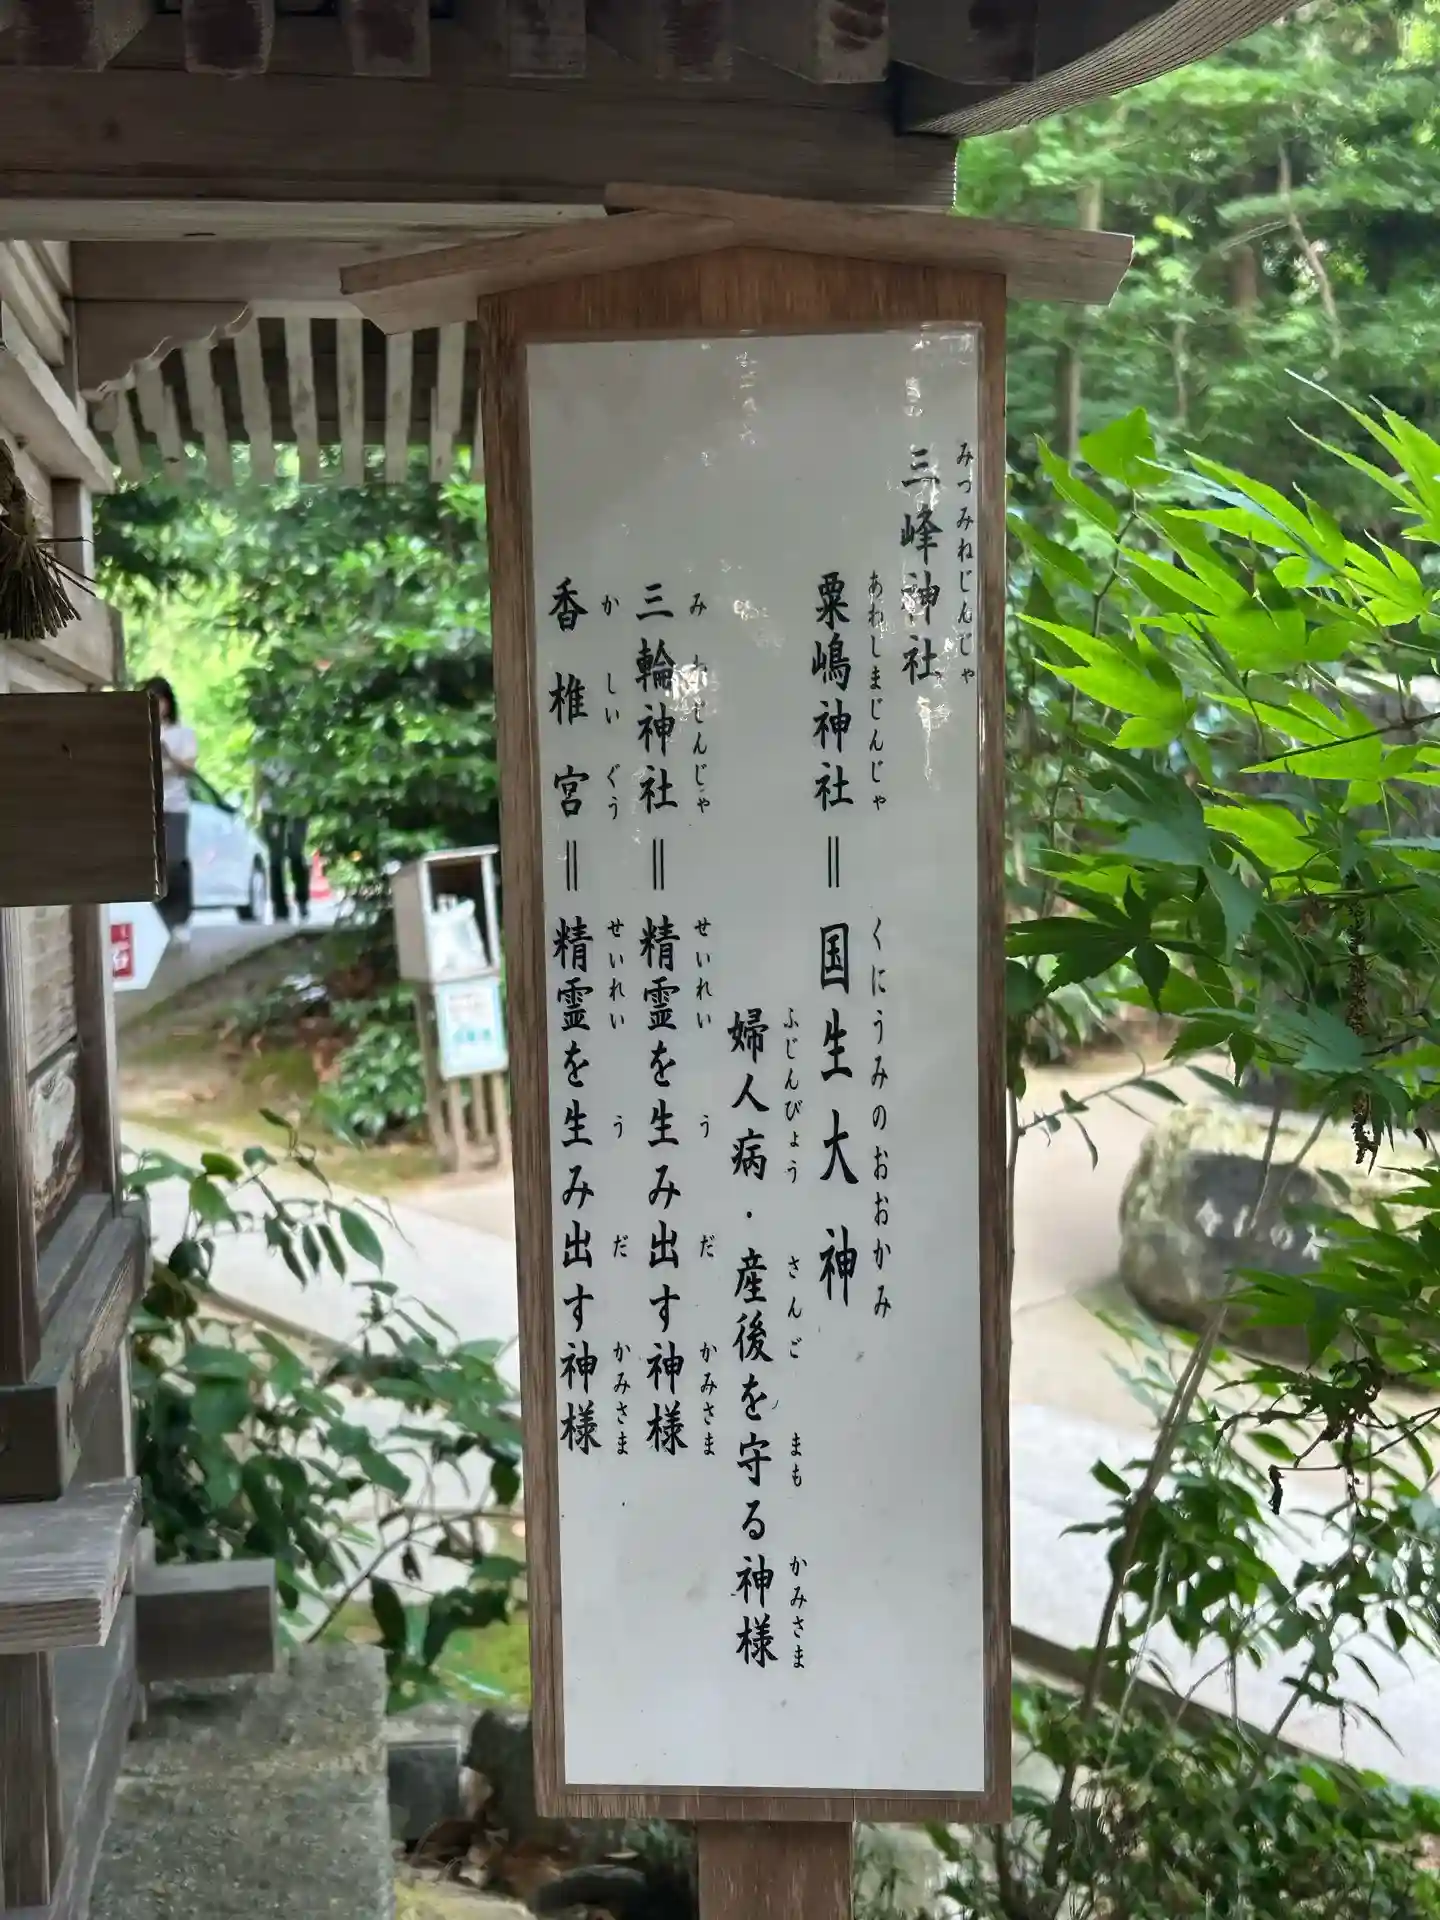 みつみねじんじゃ
三峰神社
あわしまじんじゃ くにうみのおおかみ
粟嶋神社＝国生大神
ふじんびょう さんご まも かみさま
婦人病・産後を守る神様
みわじんじゃ せいれい う だ かみさま
三輪神社＝精霊を生み出す神様
かしいぐう せいれい う だ かみさま
香椎宮＝精霊を生み出す神様